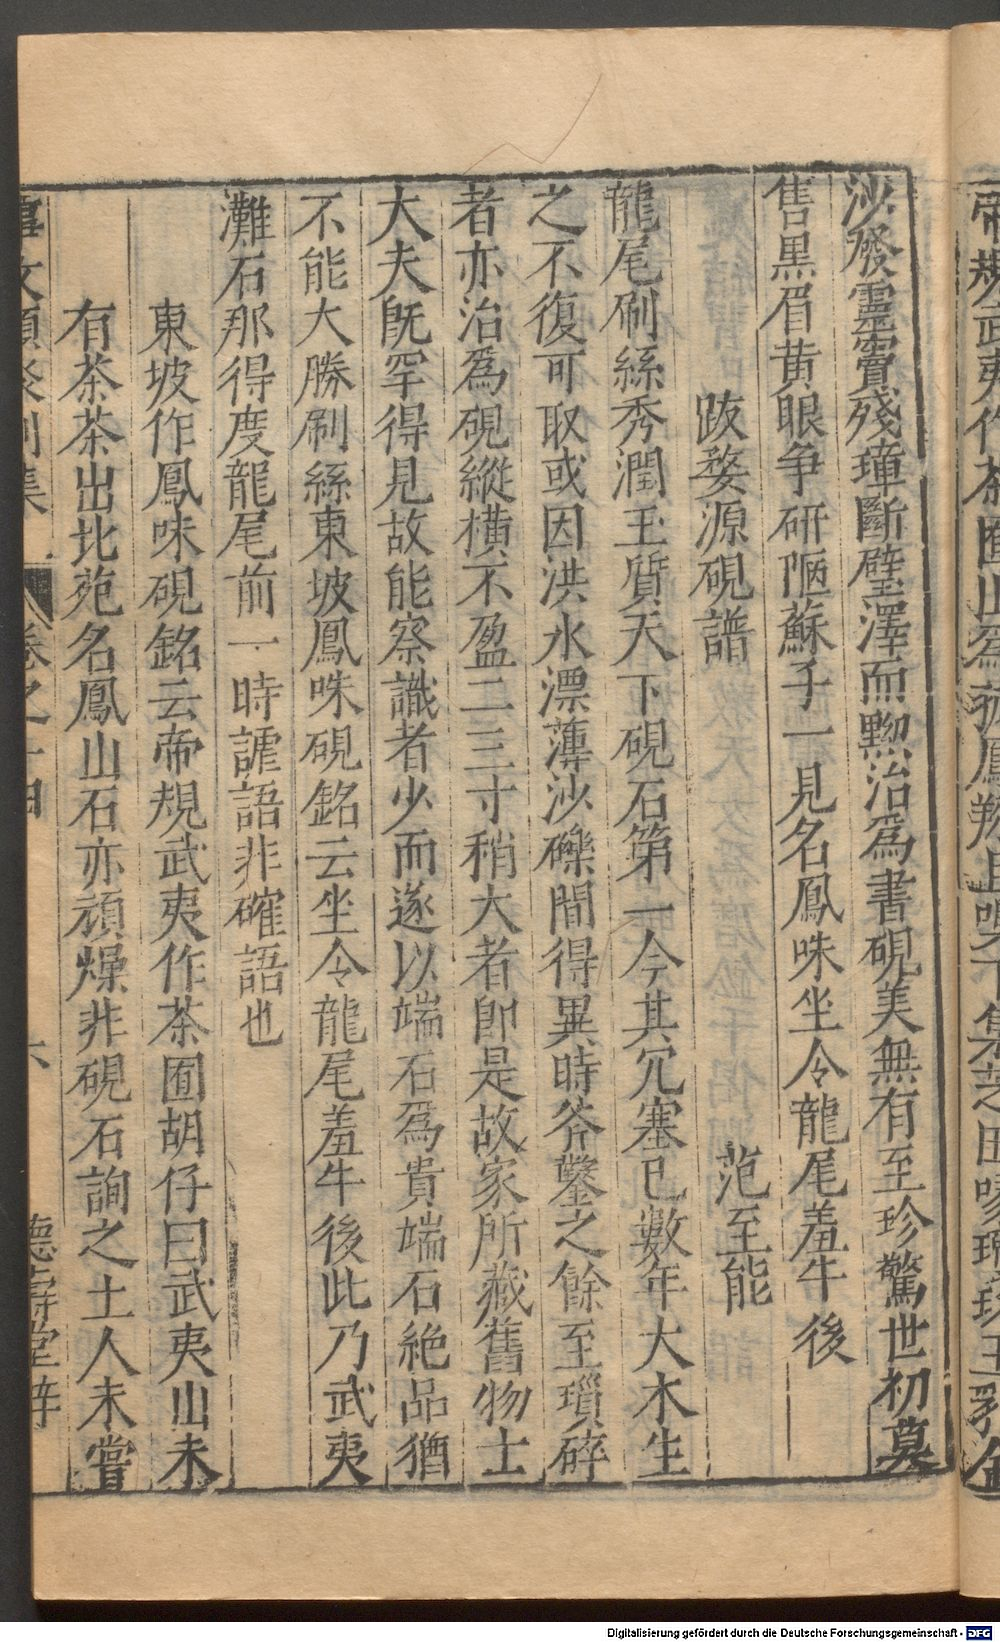 沙發靈竇殘璋斷璧澤而黝治爲書硯美無有至珍驚世初莫
售黒眉黄眼争研陋蘇子一見名鳳咮坐令龍尾羞牛後
跋婺源硯譜 范至能
龍尾刷絲秀潤玉質天下硯石第一今其冗塞已數年大木生
之不復可取或因洪水漂薄沙礫間得異時斧鑿之餘至瑣碎
者亦治爲硯縱横不盈二三寸稍大者即是故家所藏舊物士
大夫旣罕得見故能察識者少而遂以端石爲貴端石絶品猶
不能大勝刷絲東坡鳳咮硯銘云坐令龍尾羞牛後此乃武夷
灘石那得度龍尾前一時謔語非確語也
東坡作鳳咮硯銘云帝規武夷作茶囿胡仔曰武夷山未
有茶茶出北苑名鳳山石亦頑燥非硯石詢之土人未嘗
卷之十四 六
帝規武夷作茶囿山爲孤鳳翔且嗅下集芝田啄瓊玖玉乳金
Digitalisierung gefördert durch die Deutsche Forschungsgemeinschaft - DFG